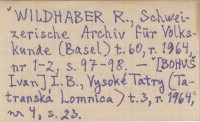 "WILDHABER R., Schwei-
zerische Archiv für Volks-
kunde (Basel) t. 60, r. 1964,
nr 1-2, s. 97-98. — [BOHUŠ
Ivan] I.B., Vysoké Tatry (Ta-
transká Lomnica) t. 3, r. 1964,
nr 4, s. 23.